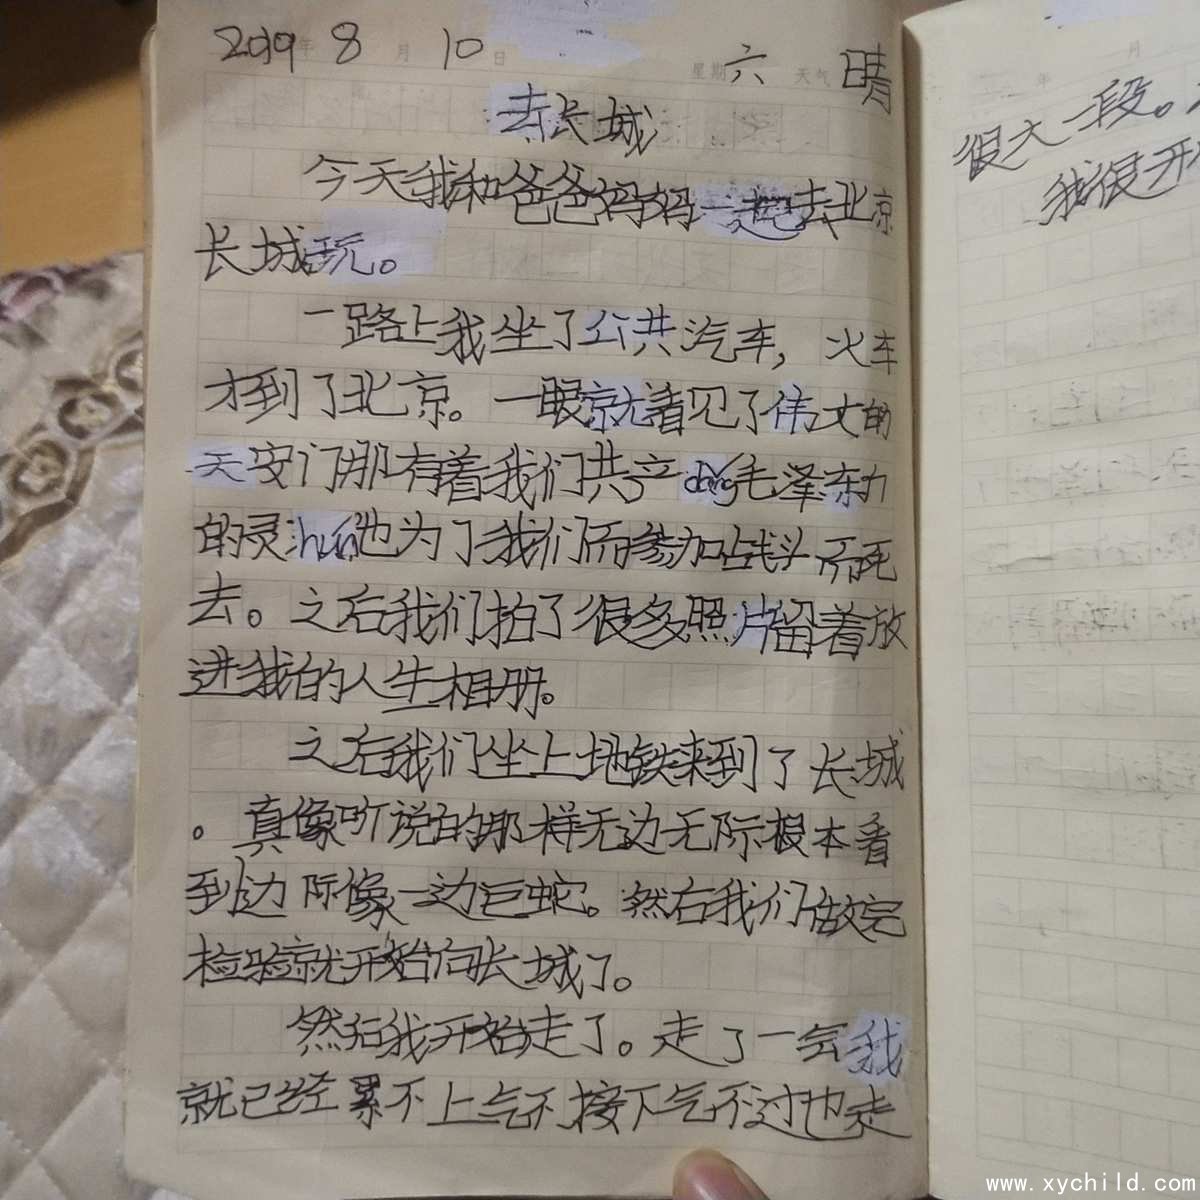 2019年 8月 10日 星期六 天气晴
去长城
今天我和爸爸妈妈一起去北京
长城玩。
一路上我坐了公共汽车，火车
才到了北京。一眼就看见了伟大的
天安门那有着我们共产dǎng毛泽东
的灵hún他为了我们而参加战斗而死
去。之后我们拍了很多照片留着放
进我的人生相册。
之后我们坐上地铁来到了长城
。真像听说的那样无边无际根本看
到边际像一边巨蛇。然后我们做完
检验就开始向长城了。
然后我开始走了。走了一会我
就已经累不上气不接下气不过也走
年 月
很大一段。
我很开
www.xychild.com